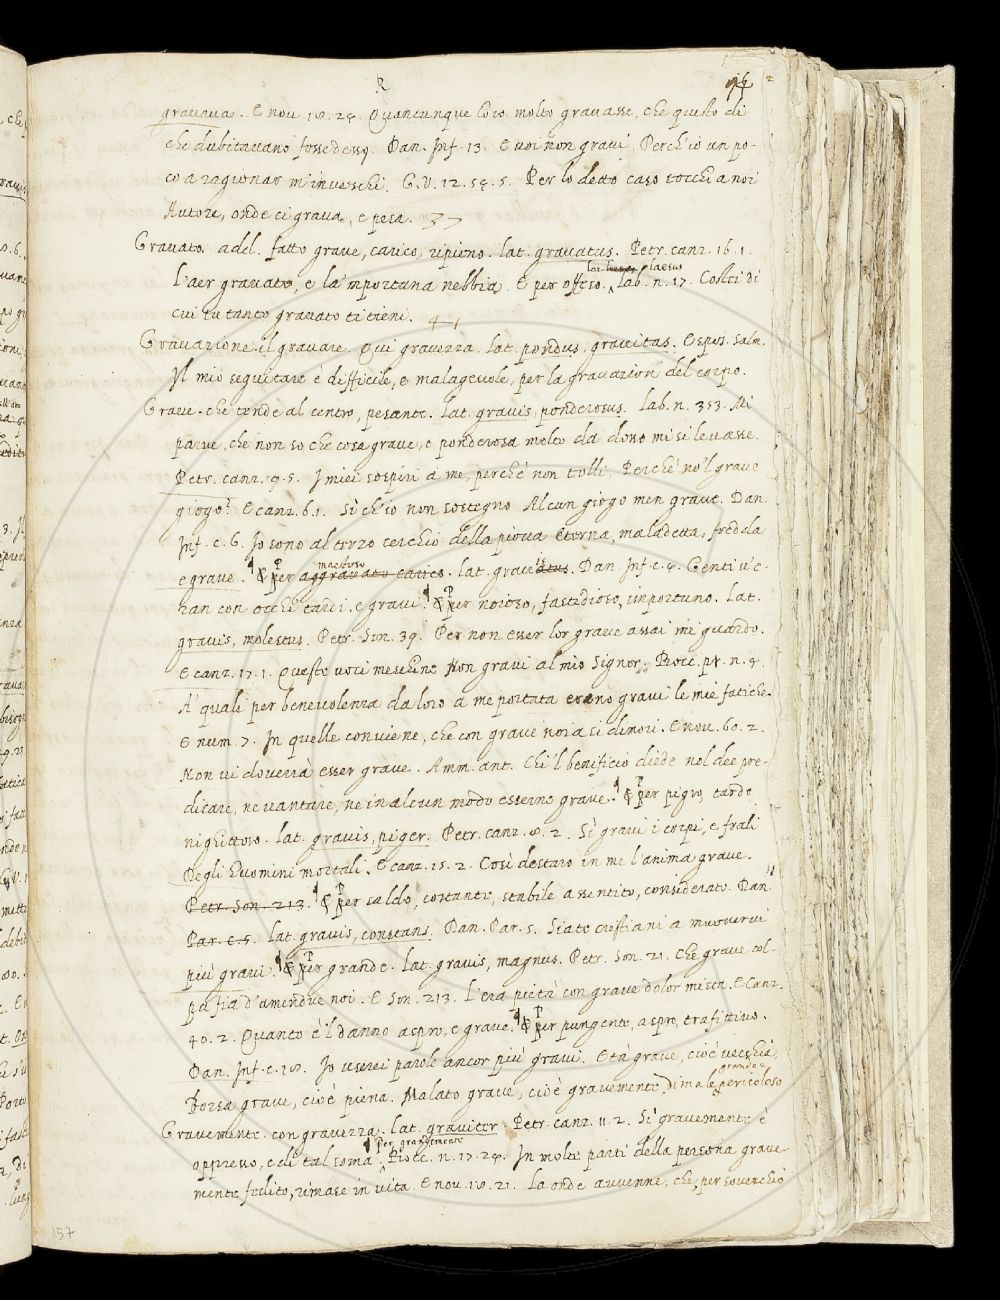 R
gravava. E nov. 18. 24. Quantunque loro molto gravasse, che questo di
che dubitavano fossedesse. Dan. Inf. 13. E voi non gravi, Perch'io un po-
co a ragionar m'inveschi. G.V. 12. 54. 5. Per lo detto caso tocchi a noi
Autore, onde ci grava, e pesa. 37
Gravato. add. fatto grave, carico, ripieno. lat. gravatus. Petr. canz. 16. 1.
L'aer gravato, e la 'mportuna nebbia. E per offeso. lat. laesus lab. n. 17. Costei di
cui tu tanto gravato ti tieni. 41
Gravazione. il gravare. Qui gravezza. lat. pondus, gravitas. Espos. Salm.
Il mio seguitare è difficile, e malagevole, per la gravazion del corpo.
Grave. che tende al centro, pesante. lat. gravis, ponderosus. lab. n. 353. Mi
parve, che non so che cosa grave, e ponderosa molto da dosso mi si levasse.
Petr. canz. 9. 5. I miei sospiri a me, perchè non tolli Perchè no 'l grave
giogo? E canz. 6. 1. Sì ch'io non sostegno Alcun giogo men grave. Dan.
Inf. c. 6. Io sono al terzo cerchio della piova Eterna, maladetta, fredda
e grave. ¶ & Per maestoso aggravato carico. lat. gravis. Dan. Inf. c. 4. Genti v'e-
ran con occhi tardi, e gravi. ¶ & Per noioso, fastidioso, importuno. lat.
gravis, molestus. Petr. Son. 39. Per non esser lor grave assai mi guardo.
E canz. 17. 1. Queste voci meschine Non gravi al mio Signor. Bocc. pr. n. 4.
A' quali per benevolenza da loro a me portata erano gravi le mie fatiche.
E num. 7. In quelle conviene, che con grave noia si dimori. E nov. 60. 2.
Non vi dovrrà esser grave. Amm. ant. Chi 'l beneficio diede nol dee pre-
dicare, ne vantare, ne in alcun modo esserne grave. ¶ & Per pigro, tardo
nighittoso. lat. gravis, piger. Petr. canz. 8. 2. Sì gravi i corpi, e frali
Degli Huomini mortali. E canz. 15. 2. Così destaro in me l'anima grave.
Petr. Son. 213. ¶ & Per saldo, costante, stabile assentito, considerato. Dan.
Par. c. 5. lat. gravis, constans. Dan. Par. 5. Siate cristiani a muovervi
più gravi. ¶ & Per grande. lat. gravis, magnus. Petr. Son. 21. Che grave col-
pa fia d'amendue noi. E Son. 213. L'era pietà con grave dolor mista. E Canz.
40. 2. Quanto è 'l danno aspro, e grave. ¶ & Per pungente, aspro, trafittivo.
Dan. Inf. c. 18. Io userei parole ancor più gravi. Età grave, cioè vecchia,
Borsa grave, cioè piena. Malato grave, cioè gravemente, di male grande e pericoloso
Gravemente. con gravezza. lat. graviter. Petr. canz. 11. 2. Sì gravemente è
oppresso, e di tal soma. ¶ Per grandemente Bocc. n. 17. 24. In molte parti della persona grave-
mente fedito, rimase in vita. E nov. 18. 21. La onde avvenne, che, per soverchio
157